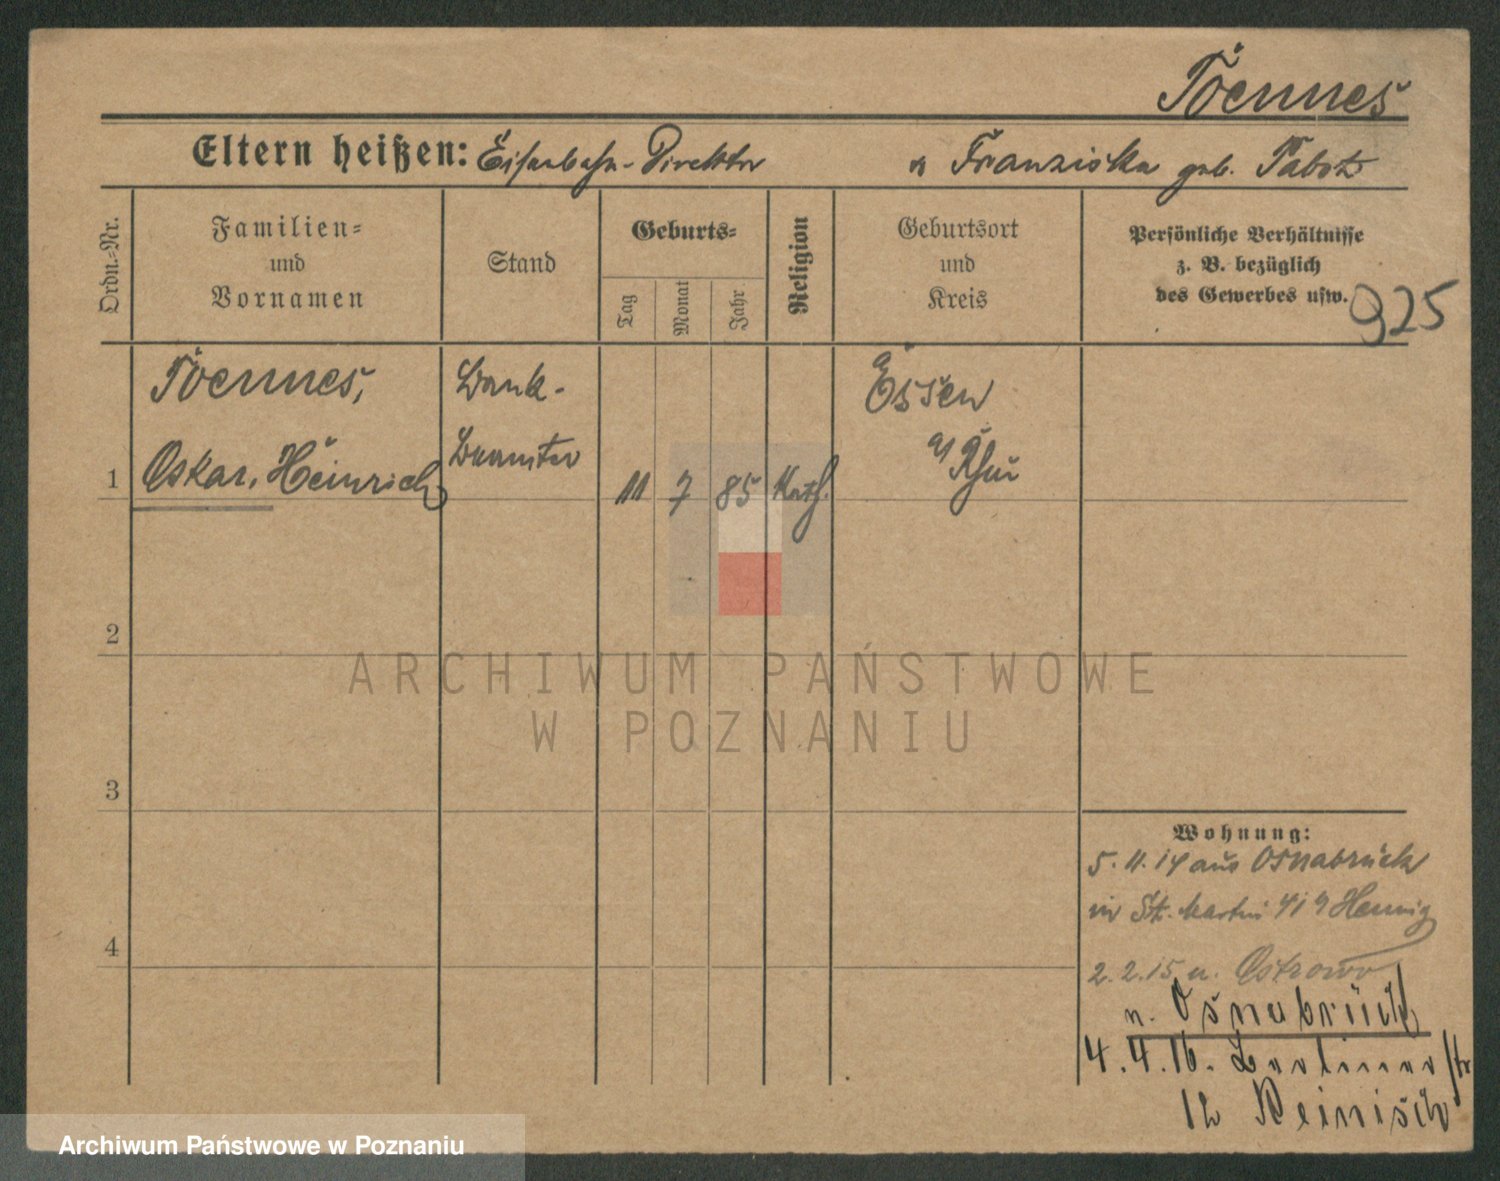 Töennes
Eltern heißen: Eisenbahn-Direktor u Franziska geb. Pabst
Ordn.-Nr.
Familien- und Vornamen
Stand
Geburts-
Tag
Monat
Jahr
Religion
Geburtsort und Kreis
Persönliche Verhältnisse
z. B. bezüglich
des Gewerbes usw.
925
Töennes,
Oskar, Heinrich
Bank-
Beamter
1
11 7 85 Kath.
Essen
a/ Rhur
2
3
4
Wohnung:
5.11.14 aus Osnabrück
in St. Martin 41 Hennig
2.2.15 n. Ostrowo
n. Osnabrück
4.4.16. Berlinerstr
12 Reinisch
ARCHIWUM PAŃSTWOWE
W POZNANIU
Archiwum Państwowe w Poznaniu